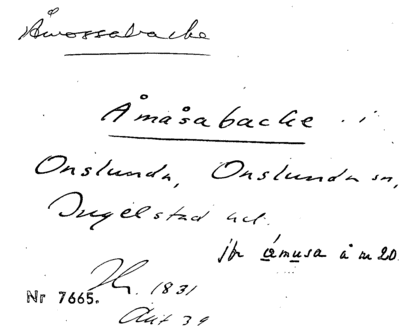 Åmossabacke
Åmåsabacke i
Onslunda, Onslunda sn,
Ingelstad hd.
jfr åmusa å m 20.
Nr 7665. 1831
Akt 39